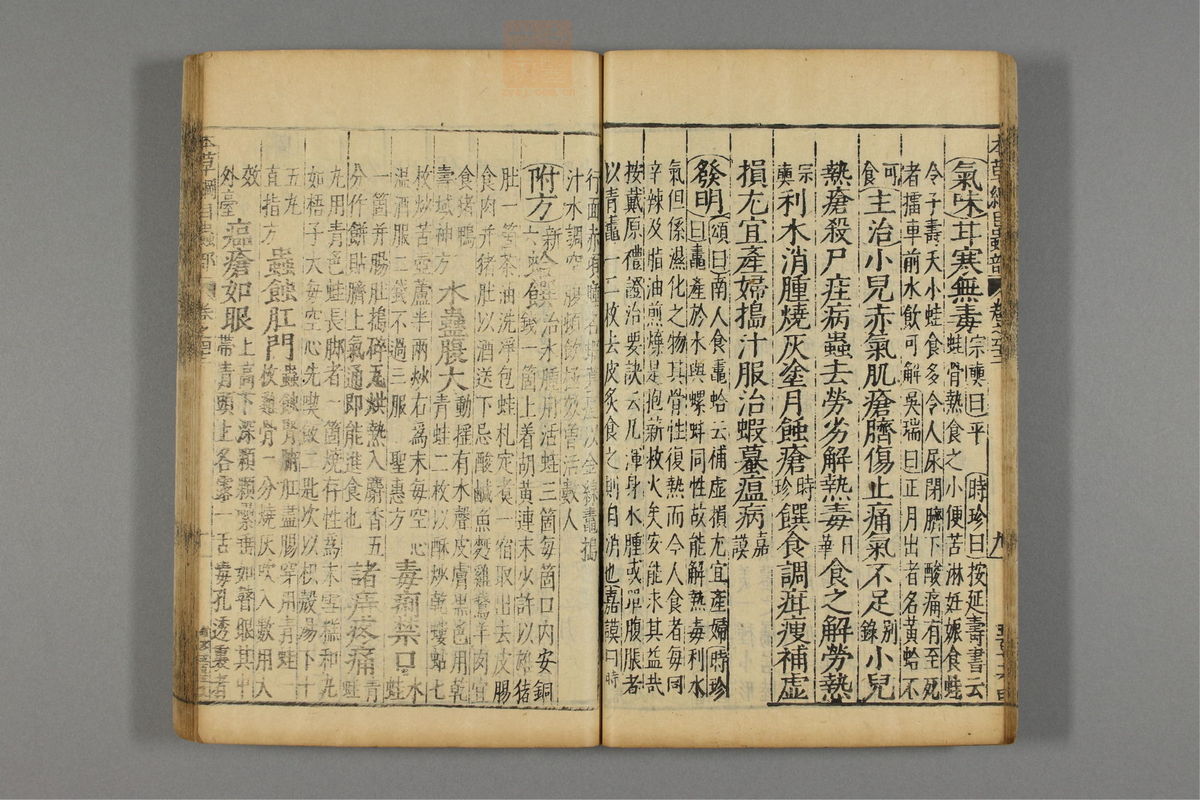 本草綱目蟲部
氣味甘寒無毒宗奭曰平時珍曰按延壽書云
蛙骨熱食之小便苦淋妊娠食蛙
令子壽夭小蛙食多令人尿閉臍下酸痛有至死
者擂車前水飲可解吳瑞曰正月出者名黃蛤不
可食主治小兒赤氣肌瘡臍傷止痛氣不足別錄小兒
熱瘡殺尸疰病蟲去勞劣解熱毒日華食之解勞熱
宗奭利水消腫燒灰塗月蝕瘡時珍饌食調疳瘦補虛
損尤宜產婦搗汁服治蝦蟇瘟病嘉謨
發明頌曰南人食鼃蛤云補虛損尤宜產婦時珍
曰鼃產於水與螺蚌同性故能解熱毒利水
氣但係濕化之物其骨性復熱而今人食者每同
辛辣及脂油煎煠是抱薪救火矣安能求其益哉
按戴原禮證治要訣云凡渾身水腫或單腹脹者
以青鼃一二枚去皮炙食之則自消也嘉謨曰時
行面赤項
以金線鼃搗
汁水調空腸頓飲極效曾活數人
附方新六蛤饌治水腫用活蛙三箇每箇口內安銅
錢一箇上着胡黃連末少許以雄猪
肚一箇茶油洗淨包蛙札定煮一宿取出去皮腸
食肉并猪肚以酒送下忌酸鹹魚麪雞鵝羊肉宜
食猪鴨壽域神方水蠱腹大動搖有水聲皮膚黑色用乾
青蛙二枚以酥炒乾螻蛄七
枚炒苦壺蘆半兩炒右爲末每空心
溫酒服二錢不過三服聖惠方毒痢禁口水蛙
一箇并腸肚搗碎瓦烘熱入麝香五
分作餅貼臍上氣通即能進食也諸痔疼痛青蛙
丸用青色蛙長脚者一箇燒存性爲末雪糕和丸
如梧子大每空心先喫飯二匙次以枳殼湯下十
五丸直指方蟲蝕肛門蟲蝕腎腑肛盡腸穿用青蛙一
枚雞骨一分燒灰吹入數用大
效外臺瘟瘡如眼上高下深顆顆累垂如瞽眼其中
帶青頭上各露一舌毒孔透裏者